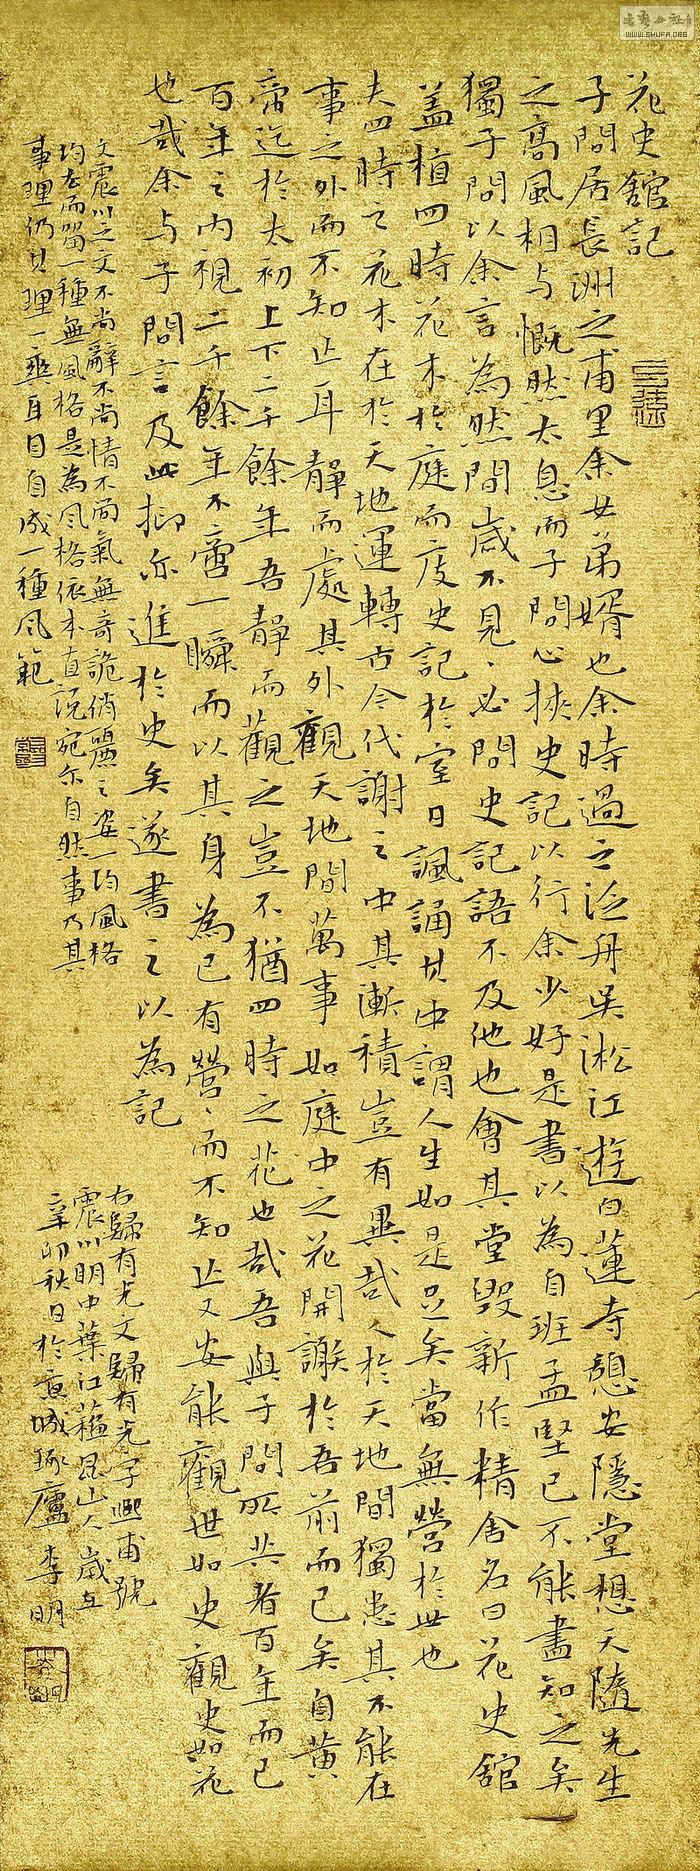 花史館記
子問居長洲之甫里余女弟婿也余時過之泛舟吳淞江遊白蓮寺憩安隱堂想天隨先生
之高風相与慨然太息而子問必挾史記以行余少好是書以為自班孟堅已不能盡知之矣
獨子問以余言為然間歲不見、必問史記語不及他也會其堂毀新作精舍名曰花史館
蓋植四時花木於庭而庋史記於室日諷誦其中謂人生如是足矣當無營於世也
夫四時之花木在於天地運轉古今代謝之中其漸積豈有異哉人於天地間獨患其不能在
事之外而不知止耳靜而處其外觀天地間萬事如庭中之花開謝於吾前而已矣自黃
帝迄於太初上下二千餘年吾靜而觀之豈不猶四時之花也哉吾與子問所共者百年而已
百年之內視二千餘年不啻一瞬而以其身為己有營、而不知止又安能觀世如史觀史如花
也哉余与子問言及此抑亦進於史矣遂書之以為記
文震川之文不尚辭不尚情不尚氣無奇詭俏麗之姿一均風格
均去而留一種無風格是為風格依本直說宛尔自然事乃其
事理仍其理一與耳目自成一種風範
右歸有光文歸有光字熙甫號
震川明中葉江蘇昆山人歲在
辛卯秋日於京城琢廬李明
书艺公社
WWW.SHUFA.ORG